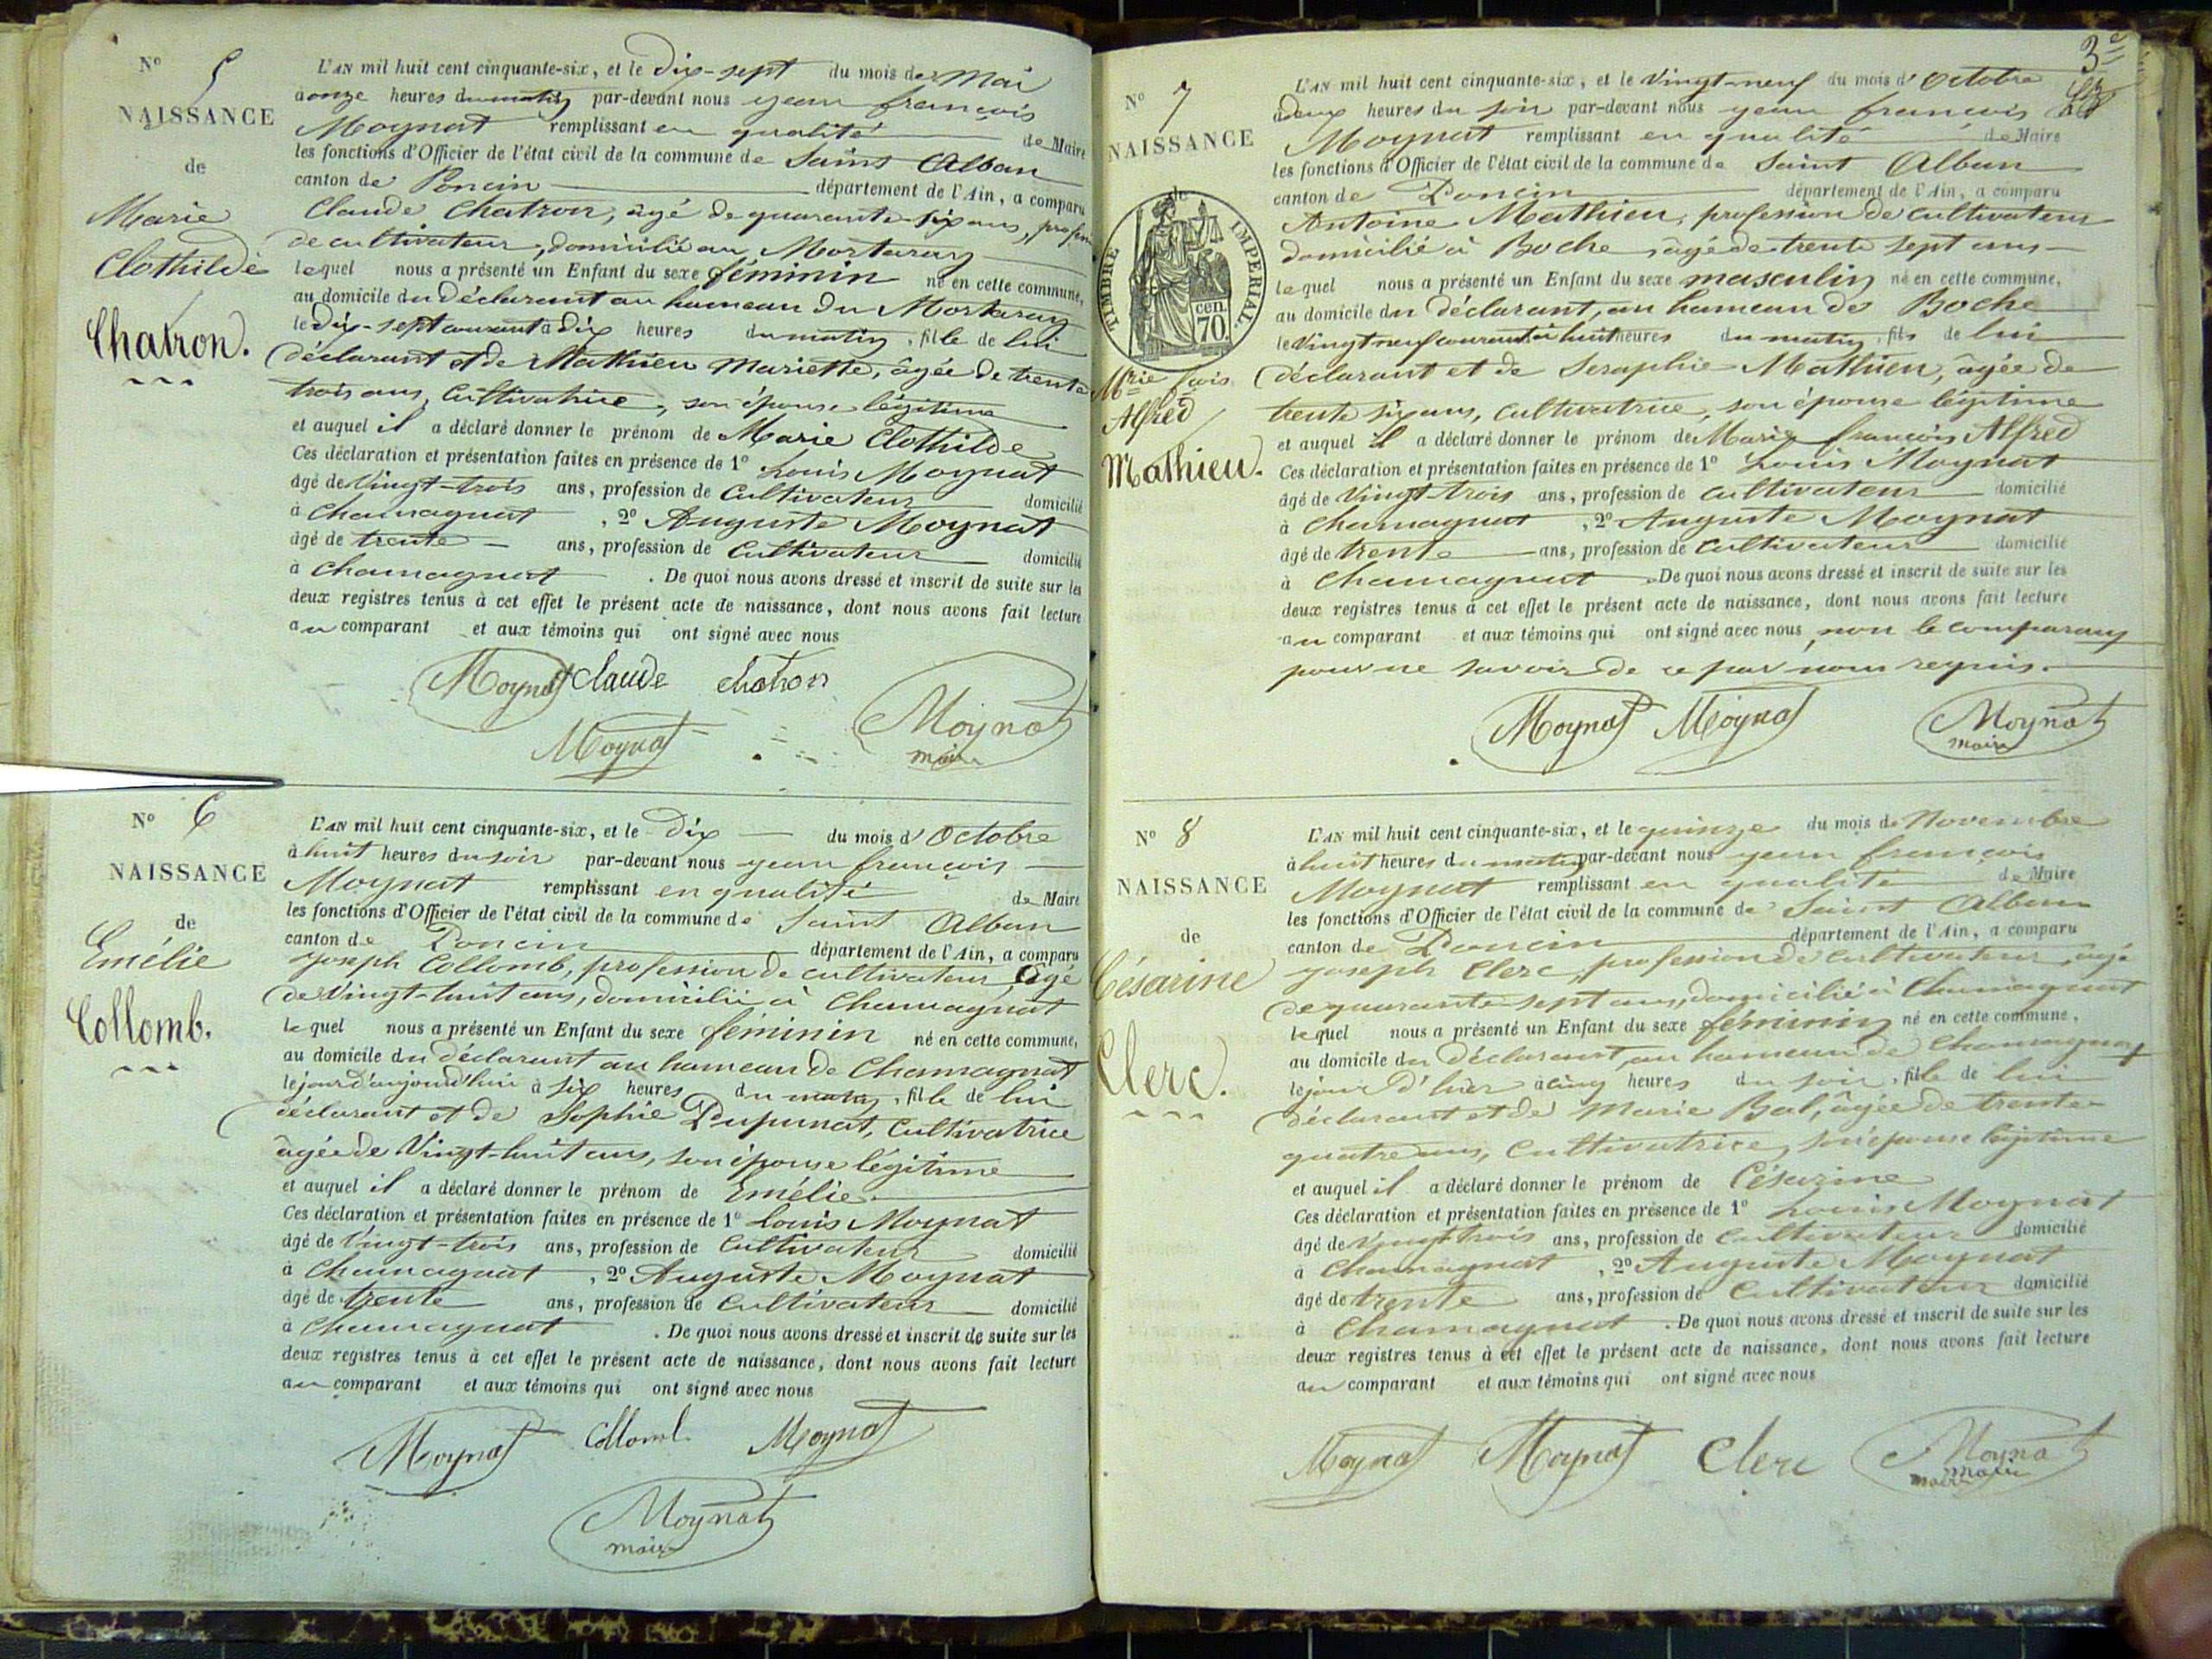 N° 5
NAISSANCE
de
Marie
Clothilde
Chatron.
L'AN mil huit cent cinquante-six, et le dix-sept du mois de Mai
à onze heures du matin par-devant nous jean françois
Moynat remplissant en qualité de Maire
les fonctions d'Officier de l'état civil de la commune de Saint Alban
canton de Poncin département de l'Ain, a comparu
Claude Chatron, âgé de quarante-six ans,
de cultivateur, domicilié au Mortaray
lequel nous a présenté un Enfant du sexe féminin né en cette commune,
au domicile du déclarant au hameau du Mortaray
le dix-sept courant à dix heures du matin, fille de lui
déclarant et de Mathieu Mariette, âgée de trente
trois ans, Cultivatrice, son épouse légitime
et auquel il a déclaré donner le prénom de Marie Clothilde
Ces déclaration et présentation faites en présence de 1° Louis Moynat
âgé de Vingt-trois ans, profession de Cultivateur domicilié
à Chamagnat, 2° Auguste Moynat
âgé de trente ans, profession de Cultivateur domicilié
à Chamagnat. De quoi nous avons dressé et inscrit de suite sur les
deux registres tenus à cet effet le présent acte de naissance, dont nous avons fait lecture
au comparant et aux témoins qui ont signé avec nous
Moynat Claude chatron
Moynat Moynat
maire
N° 6
NAISSANCE
de
Emélie
Collomb.
L'AN mil huit cent cinquante-six, et le dix du mois d'Octobre
à huit heures du soir par-devant nous jean françois
Moynat remplissant en qualité de Maire
les fonctions d'Officier de l'état civil de la commune de Saint Alban
canton de Poncin département de l'Ain, a comparu
joseph Collomb, profession de cultivateur âgé
de Vingt-huit ans, domicilié à Chamagnat
lequel nous a présenté un Enfant du sexe féminin né en cette commune,
au domicile du déclarant au hameau de Chamagnat
le jour d'aujourd'hui à six heures du matin, fille de lui
déclarant et de Sophie Dupunat, Cultivatrice
âgée de Vingt-huit ans, son épouse légitime
et auquel il a déclaré donner le prénom de Emélie
Ces déclaration et présentation faites en présence de 1° Louis Moynat
âgé de Vingt-trois ans, profession de Cultivateur domicilié
à Chamagnat, 2° Auguste Moynat
âgé de trente ans, profession de Cultivateur domicilié
à Chamagnat. De quoi nous avons dressé et inscrit de suite sur les
deux registres tenus à cet effet le présent acte de naissance, dont nous avons fait lecture
au comparant et aux témoins qui ont signé avec nous
Moynat Collomb Moynat
Moynat
maire
3e
N° 7
NAISSANCE
de
TIMBRE IMPÉRIAL.
cen.
70.
Mrie fçois
Alfred
Mathieu.
L'AN mil huit cent cinquante-six, et le Vingt-neuf du mois d'Octobre
à deux heures du soir par-devant nous jean françois
Moynat remplissant en qualité de Maire
les fonctions d'Officier de l'état civil de la commune de Saint Alban
canton de Poncin département de l'Ain, a comparu
Antoine Mathieu, profession de cultivateur
domicilié à Boche, âgé de trente sept ans
lequel nous a présenté un Enfant du sexe masculin né en cette commune,
au domicile du déclarant, au hameau de Boche
le Vingt neuf courant à huit heures du matin, fils de lui
déclarant et de Seraphie Mathieu, âgée de
trente six ans, Cultivatrice, son épouse légitime
et auquel il a déclaré donner le prénom de Marie françois Alfred
Ces déclaration et présentation faites en présence de 1° Louis Moynat
âgé de Vingt-trois ans, profession de cultivateur domicilié
à Chamagnat, 2° Auguste Moynat
âgé de trente ans, profession de Cultivateur domicilié
à Chamagnat. De quoi nous avons dressé et inscrit de suite sur les
deux registres tenus à cet effet le présent acte de naissance, dont nous avons fait lecture
au comparant et aux témoins qui ont signé avec nous, non le comparant
pour ne savoir de ce par nous requis.
Moynat Moynat Moynat
maire
N° 8
NAISSANCE
de
Césarine
Clerc.
L'AN mil huit cent cinquante-six, et le quinze du mois de Novembre
à huit heures du matin par-devant nous jean françois
Moynat remplissant en qualité de Maire
les fonctions d'Officier de l'état civil de la commune de Saint Alban
canton de Poncin département de l'Ain, a comparu
joseph Clerc, profession de cultivateur, âgé
de quarante sept ans, domicilié à Chamagnat
lequel nous a présenté un Enfant du sexe féminin né en cette commune,
au domicile du déclarant, au hameau de Chamagnat
le jour d'hier à cinq heures du soir, fille de lui
déclarant et de Marie Bal, âgée de trente
quatre ans, Cultivatrice, son épouse légitime
et auquel il a déclaré donner le prénom de Césarine
Ces déclaration et présentation faites en présence de 1° Louis Moynat
âgé de Vingt-trois ans, profession de Cultivateur domicilié
à Chamagnat, 2° Auguste Moynat
âgé de trente ans, profession de Cultivateur domicilié
à Chamagnat. De quoi nous avons dressé et inscrit de suite sur les
deux registres tenus à cet effet le présent acte de naissance, dont nous avons fait lecture
au comparant et aux témoins qui ont signé avec nous
Moynat Moynat Clerc Moynat
maire maire